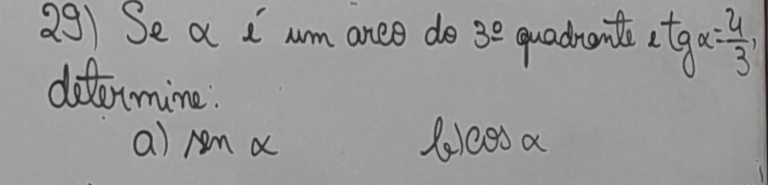 29) Se α é um arco do 3º quadrante e tg α = 4/3,
determine:
a) sen α b) cos α